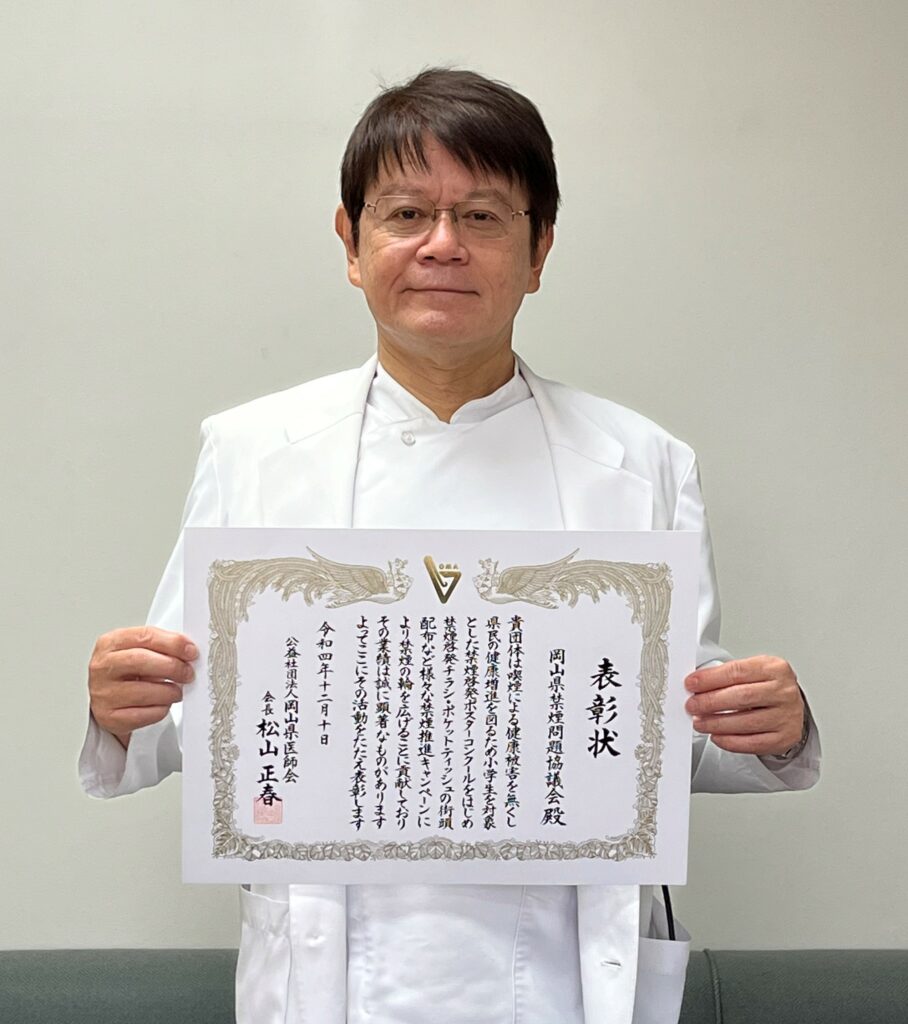 OMA
表彰状
岡山県禁煙問題協議会殿
貴団体は喫煙による健康被害を無くし
県民の健康増進を図るため小学生を対象
とした禁煙啓発ポスターコンクールをはじめ
禁煙啓発チラシ・ポケットティッシュの街頭
配布など様々な禁煙推進キャンペーンに
より禁煙の輪を広げることに貢献しており
その業績は誠に顕著なものがあります
よってここにその活動をたたえ表彰します
令和四年十二月十日
公益社団法人岡山県医師会
会長 松山正春